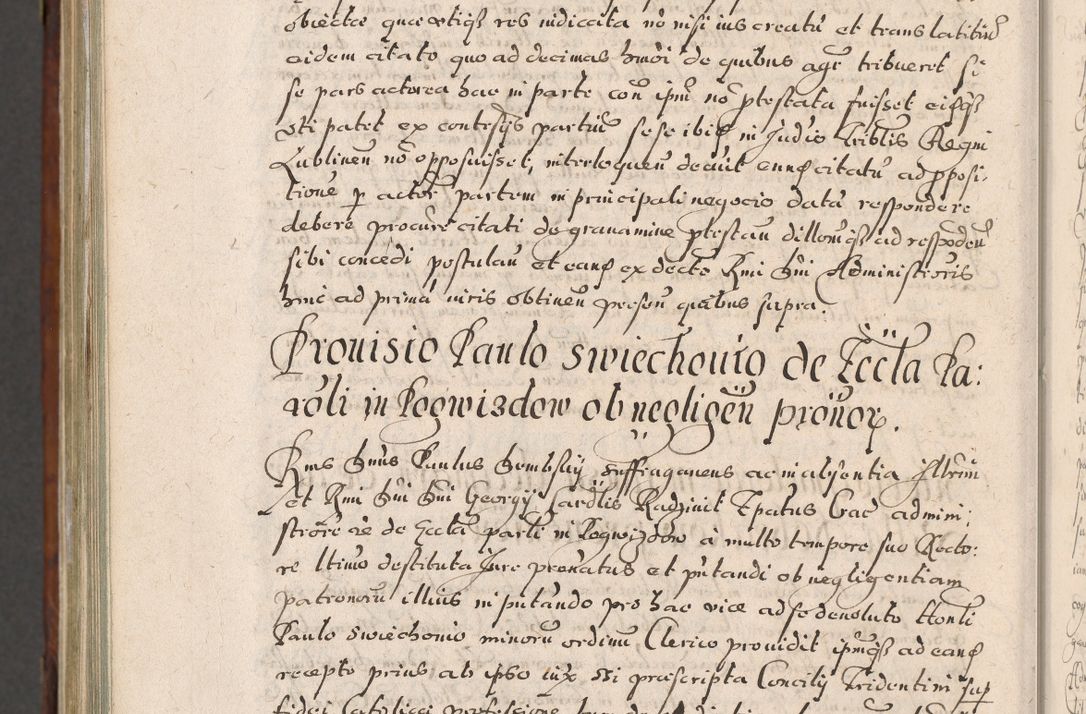 obiectæ quæ vtiqß res iudicata nō nisi ius creatū et translatitiū
eidem citato quo ad decimas hmōi de quibus agr̄ tribueret si
se pars actorea hac in parte corā ipm̄ nō ptestata fuisset
vti patet ex contesijs partiū sese ibid in Judio Triblis Regni
Lublinen nō opposuisset, interloquen decūit eundȩ citatū ad pposi-
tionē p actorē partem in principali negocio data respondere
debere procure citati de grauamine ptestan dillonqß ad respoden
sibi concedi postulan et eandȩ ex decto Rmi Dni Administroris
hinc ad primā iuris obtinen presen quibus supra.
Prouisio Paulo Swiechouio de Eccla Pa:
roli in Pogwizdow ob negligen pronor.
Rms Dnus Paulus Dembsky Suffraganeus ac in absentia Illrmi
et Rmi Dni Dni Georgij Cardlis Radziuil Epatus Crac admini;
strore re de Eccla parli in Pogwizdow à multo tempore suo Recto:
re ltimo destituta Jure pronatus et pntandi ob negligentiam
patronoru illius in putando pro hac vice ad se deuoluto Honli
Paulo Swiechouio minoru ordinu Clerico prouidit ipmqß ad eandȩ
recepto prius ab ipso iux vi præscripta Concilij Tridentini sup
fidei Catolicæ professione